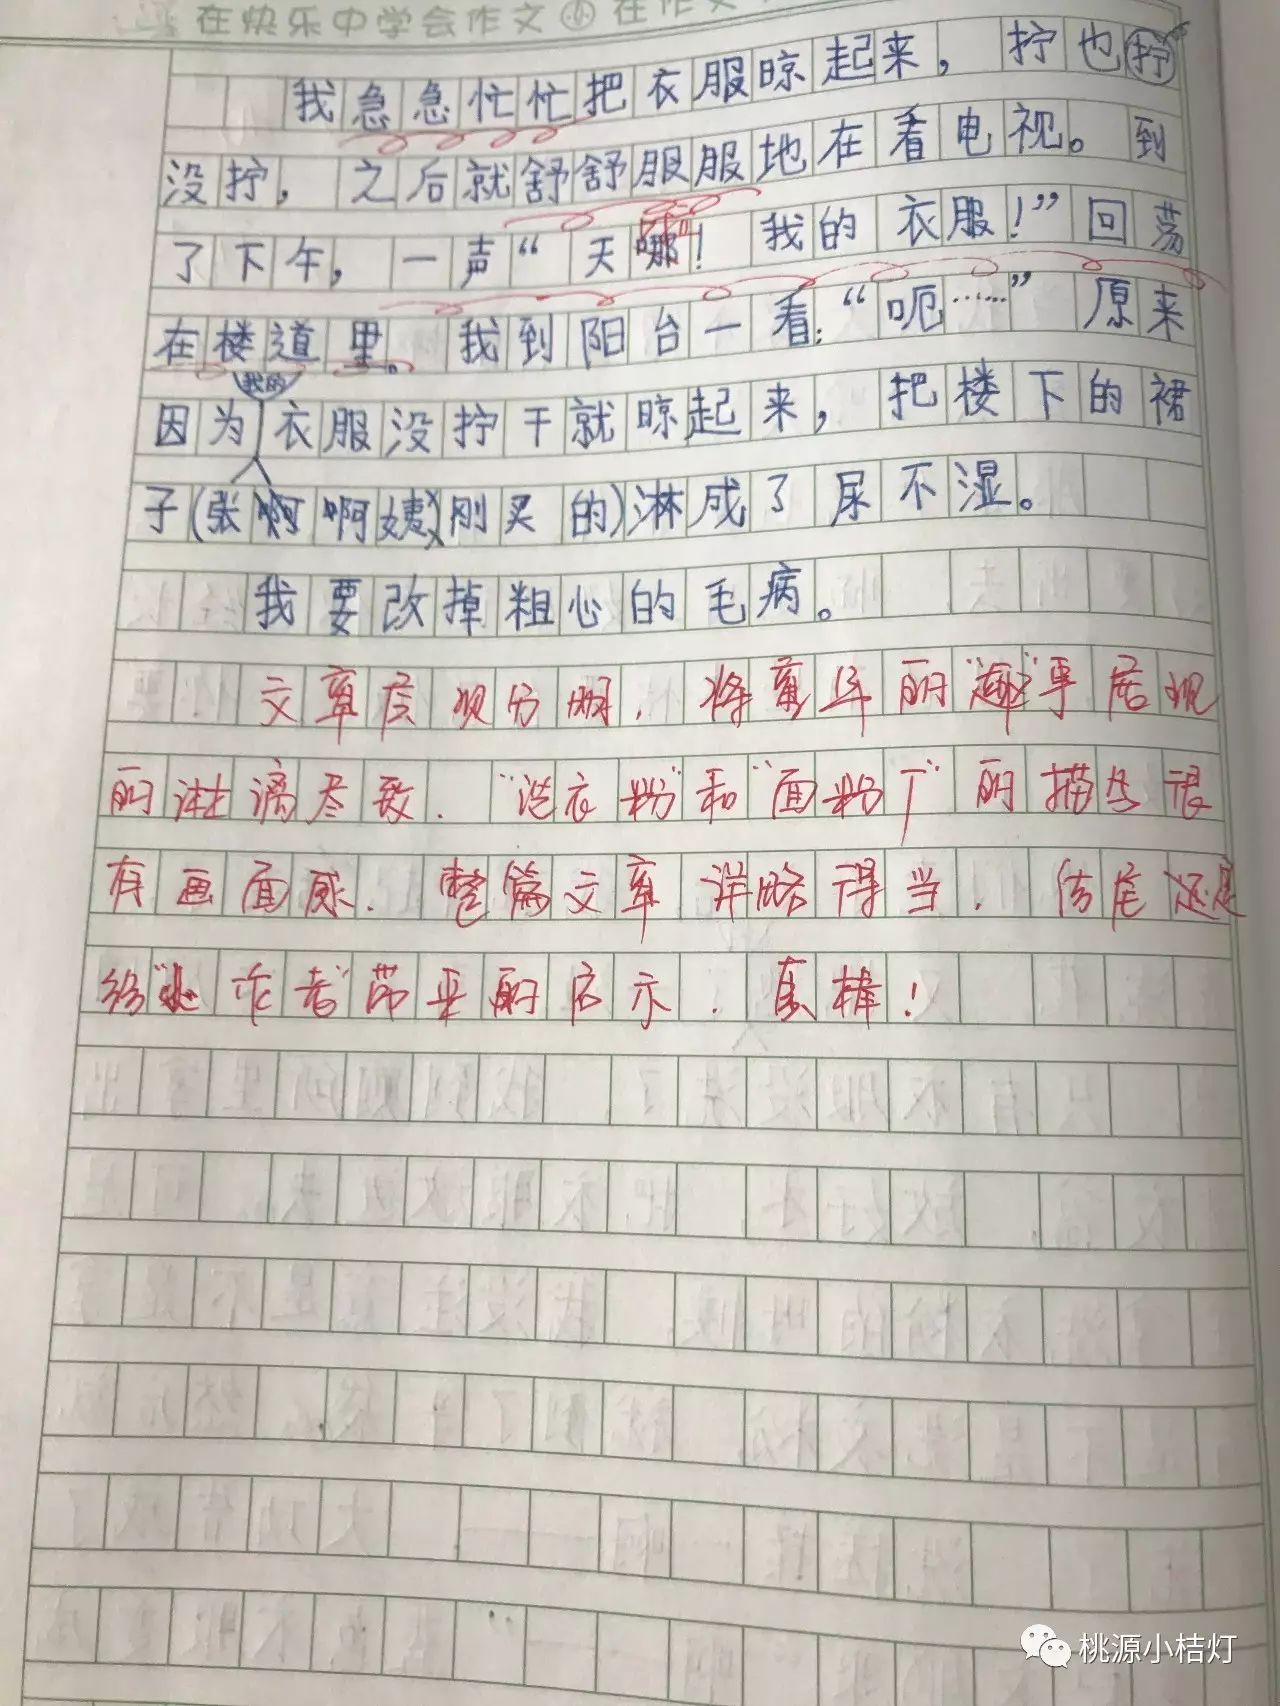 在快乐中学会作文 小 在作文
我急急忙忙把衣服晾起来，拧也拧
没拧，之后就舒舒服服地在看电视。到
了下午，一声“天哪！我的衣服！”回荡
在楼道里。我到阳台一看：“呃……”原来
因为我的衣服没拧干就晾起来，把楼下的裙
子(张阿姨刚买的)淋成了尿不湿。
我要改掉粗心的毛病。
文章层次分明，将童年的“趣”事展现
的淋漓尽致。“洗衣粉”和“面粉厂”的描写很
有画面感。整篇文章详略得当。结尾还是
给 带来的启示。真棒！
桃源小桔灯